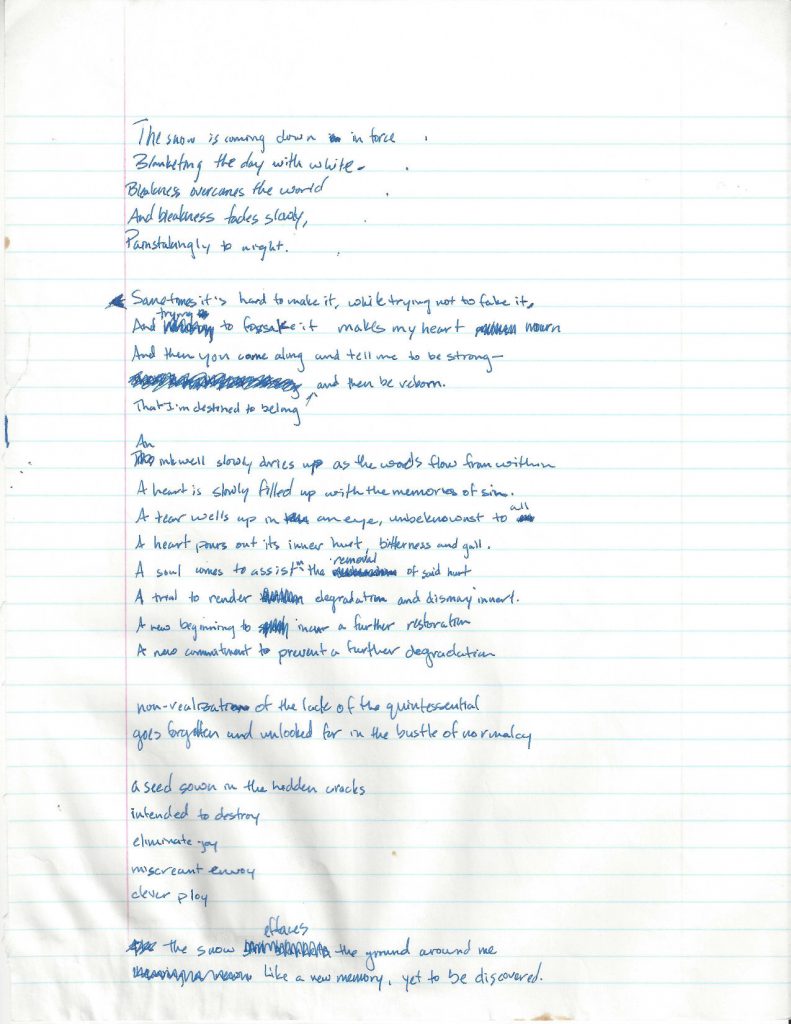 The snow is coming down in force
Blanketing the day with white -
Bleakness overcomes the world
And bleakness fades slowly,
Painstakingly to night.
Sometimes it's hard to make it, while trying not to fake it,
trying
And to forsake it makes my heart mourn
And then you come along and tell me to be strong—
and then be reborn.
That I'm destined to belong
An
inkwell slowly dries up as the words flow from within
A heart is slowly filled up with the memories of sin.
all
A tear wells up in an eye, unbeknownst to
A heart pours out its inner hurt, bitterness and gall.
removal
A soul comes to assist in the of said hurt
A trial to render degradation and dismay inert.
A new beginning to incur a further restoration
A new commitment to prevent a further degradation
non-realization of the lack of the quintessential
goes forgotten and unlooked for in the bustle of normalcy
a seed sown in the hidden cracks
intended to destroy
eliminate joy
miscreant envoy
clever ploy
effaces
the snow the ground around me
Like a new memory, yet to be discovered.